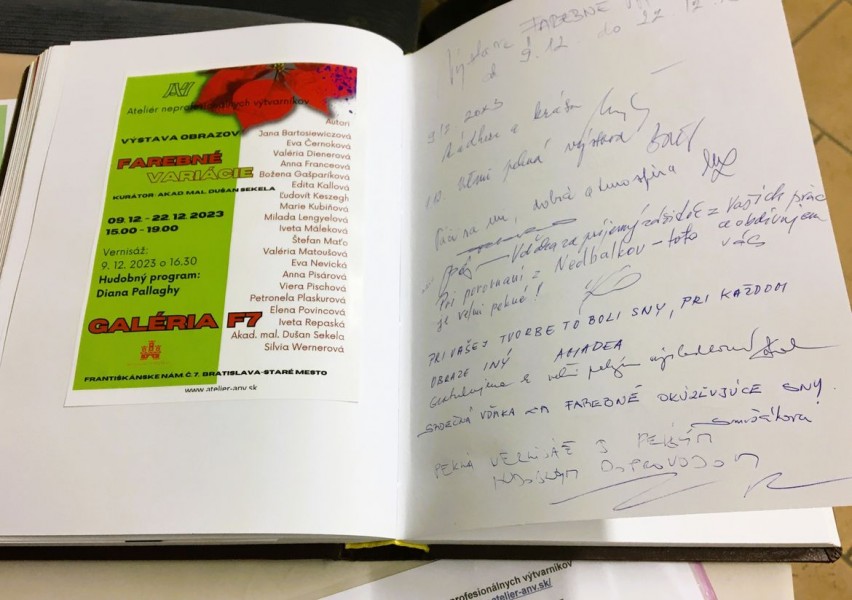 Ateliér neprofesionálnych výtvarníkov
VÝSTAVA OBRAZOV
FAREBNÉ
VARIÁCIE
KURÁTOR: AKAD. MAL. DUŠAN SEKELA
09.12 - 22.12 2023
15.00 - 19.00
Vernisáž:
9. 12. 2023 o 16.30
Hudobný program:
Diana Pallaghy
GALÉRIA F7
Autori
Jana Bartosiewiczová
Eva Černoková
Valéria Dienerová
Anna Franceová
Božena Gašparíková
Edita Kallová
Ľudovít Keszegh
Marie Kubiňová
Milada Lengyelová
Iveta Máleková
Štefan Maťo
Valéria Matoušová
Eva Nevická
Anna Pisárová
Viera Pischová
Petronela Plaskurová
Elena Povincová
Iveta Repaská
Akad. mal. Dušan Sekela
Silvia Wernerová
FRANTIŠKÁNSKE NÁM.Č.7. BRATISLAVA-STARÉ MESTO
www.atelier-anv.sk
Výstava FAREBNÉ
od 9.12 do 22 12
Nádhera a krása
veľmi pekná výstava
dobrá atmosféra
Vďaka za príjemný zážitok z Vašich prác
Pri porovnaní z Nedbalkou - toto a obdivujem
je veľmi pekné! vás
PRI VAŠEJ TVORBE TO BOLI SNY, PRI KAŽDOM
OBRAZE INÝ
Gratulujeme k veľmi pekným
SRDEČNÁ VĎAKA ZA FAREBNÉ OKÚZĽUJÚCE SNY.
PEKNÁ VERNISÁŽ S PEKNÝM
HUDOBNÝM DOPROVODOM
profesionálnych výtvarníkov
atelier-anv.sk/